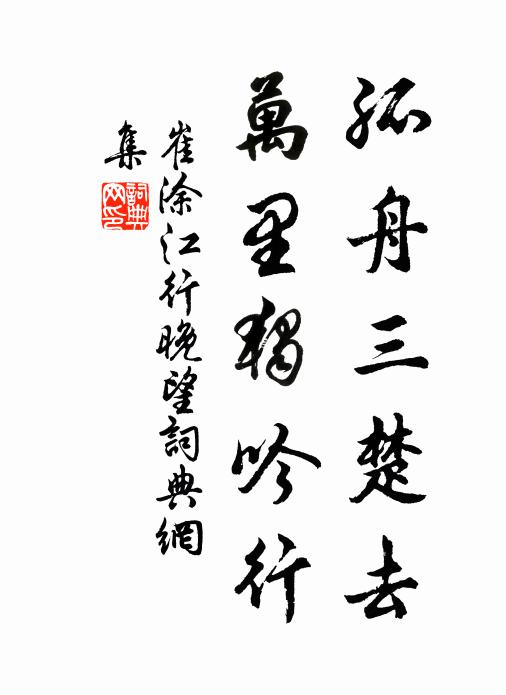 孤舟三楚去
萬里獨吟行
崔涂江行晚望詞典網
集
詞典
网印